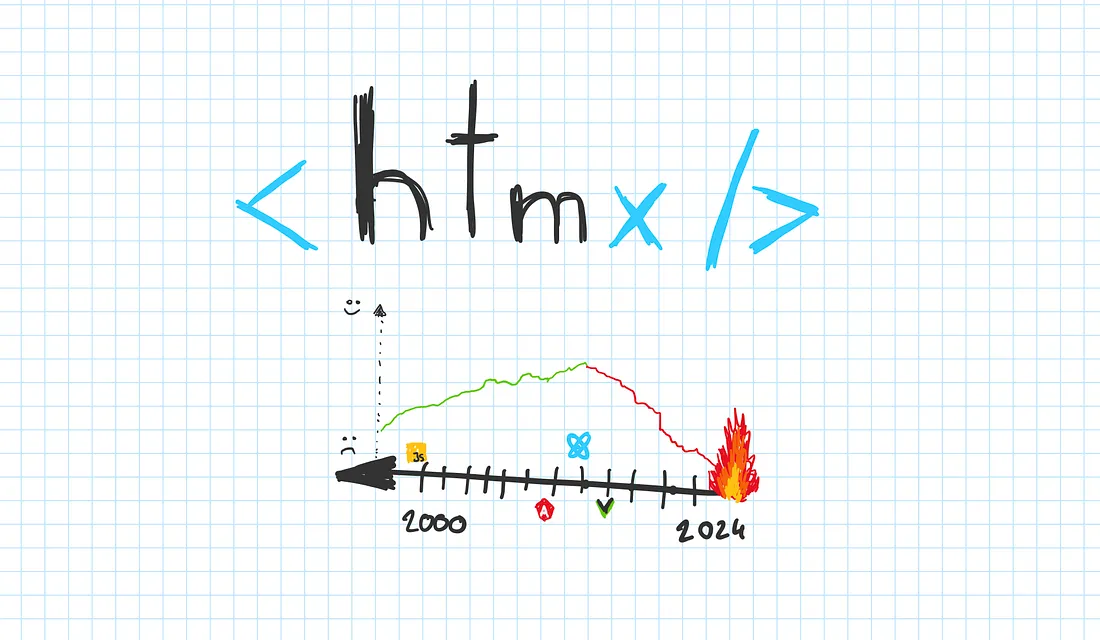 <htmx/>
JS
A
2000
2024